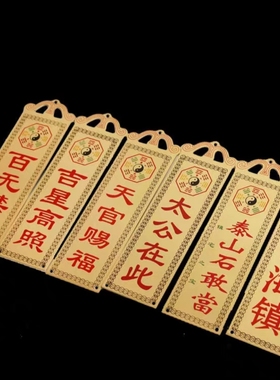 百无禁
吉星高照
天官赐福
太公在此
泰山石敢當
海镇